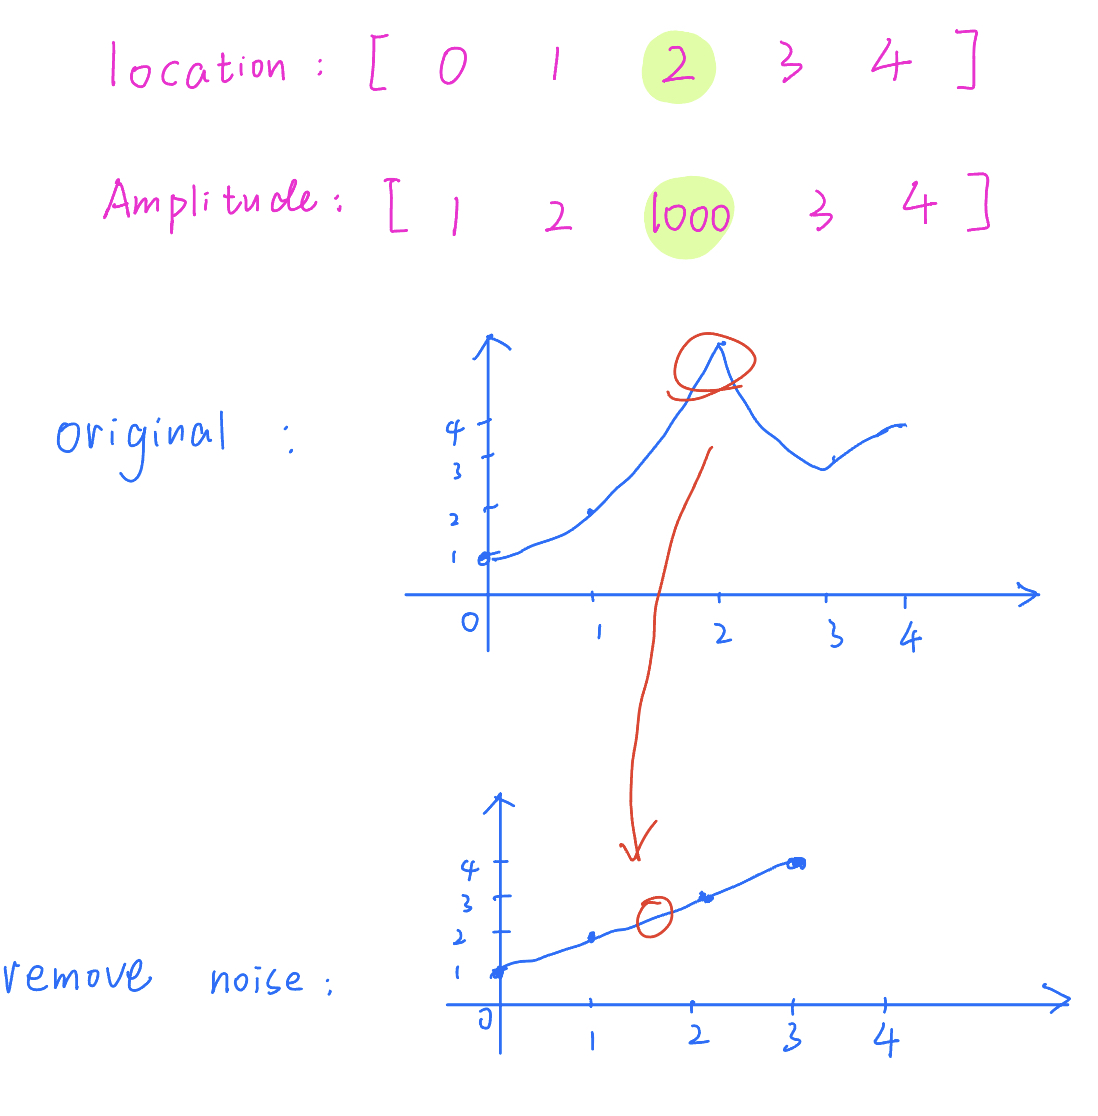 location : [ 0 1 2 3 4 ]
Amplitude : [ 1 2 1000 3 4 ]
original :
4
3
2
1
0 1 2 3 4
remove noise :
4
3
2
1
0 1 2 3 4